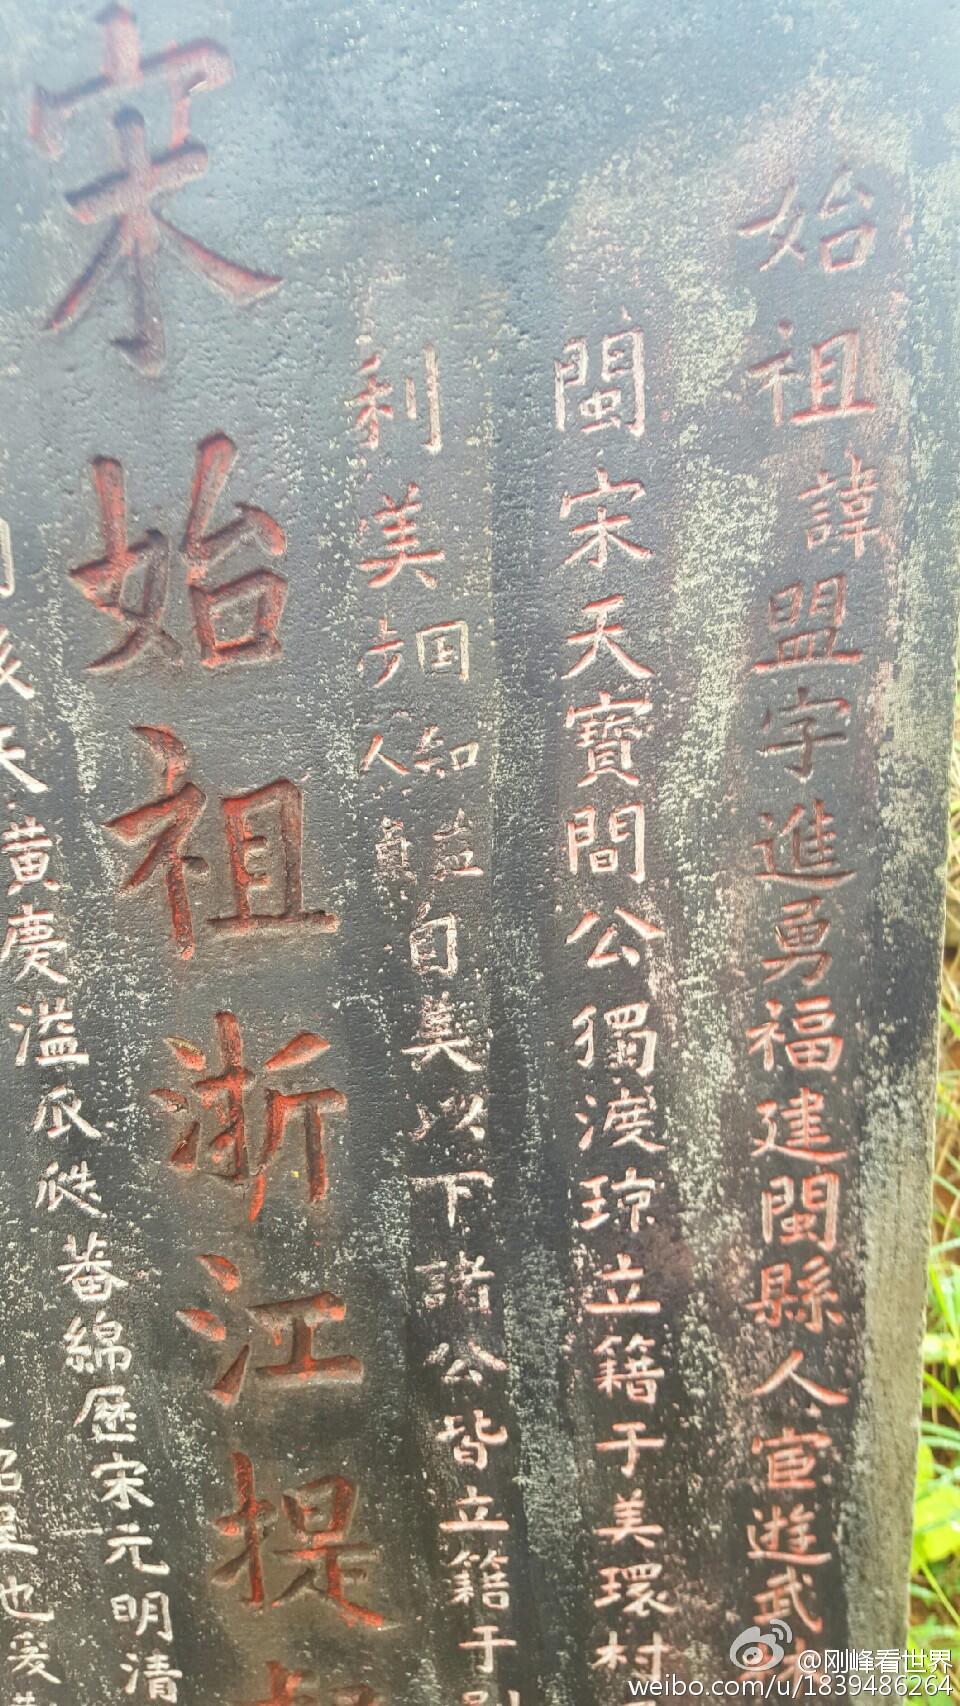 始祖諱盟字進勇福建閩縣人宦遊武
閩宋天寶間公獨渡琼立籍于美環村
利美
国知益
步人員
自美以下諸公皆立籍于
宋始祖浙江提
黄慶溢瓜瓞蕃綿歷宋元明清
也爰
@刚峰看世界
weibo.com/u/1839486264